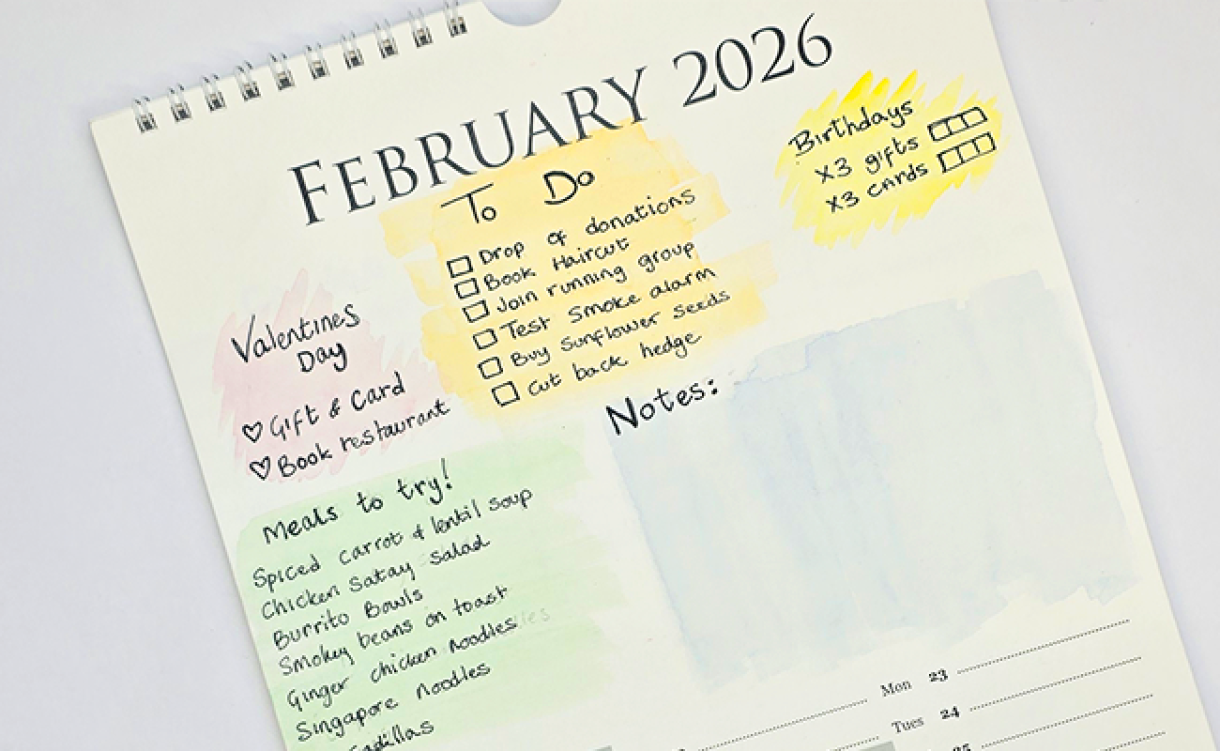 FEBRUARY 2026
To Do
Drop of donations
Book Haircut
Join running group
Test Smoke alarm
Buy Sunflower seeds
Cut back hedge
Birthdays
x3 gifts
x3 cards
Valentines
Day
Gift & Card
Book restaurant
Notes:
Meals to try!
Spiced carrot & lentil soup
Chicken Satay Salad
Burrito Bowls
Smokey beans on toast
Ginger chicken noodles
Singapore noodles
Mon 23
Tues 24